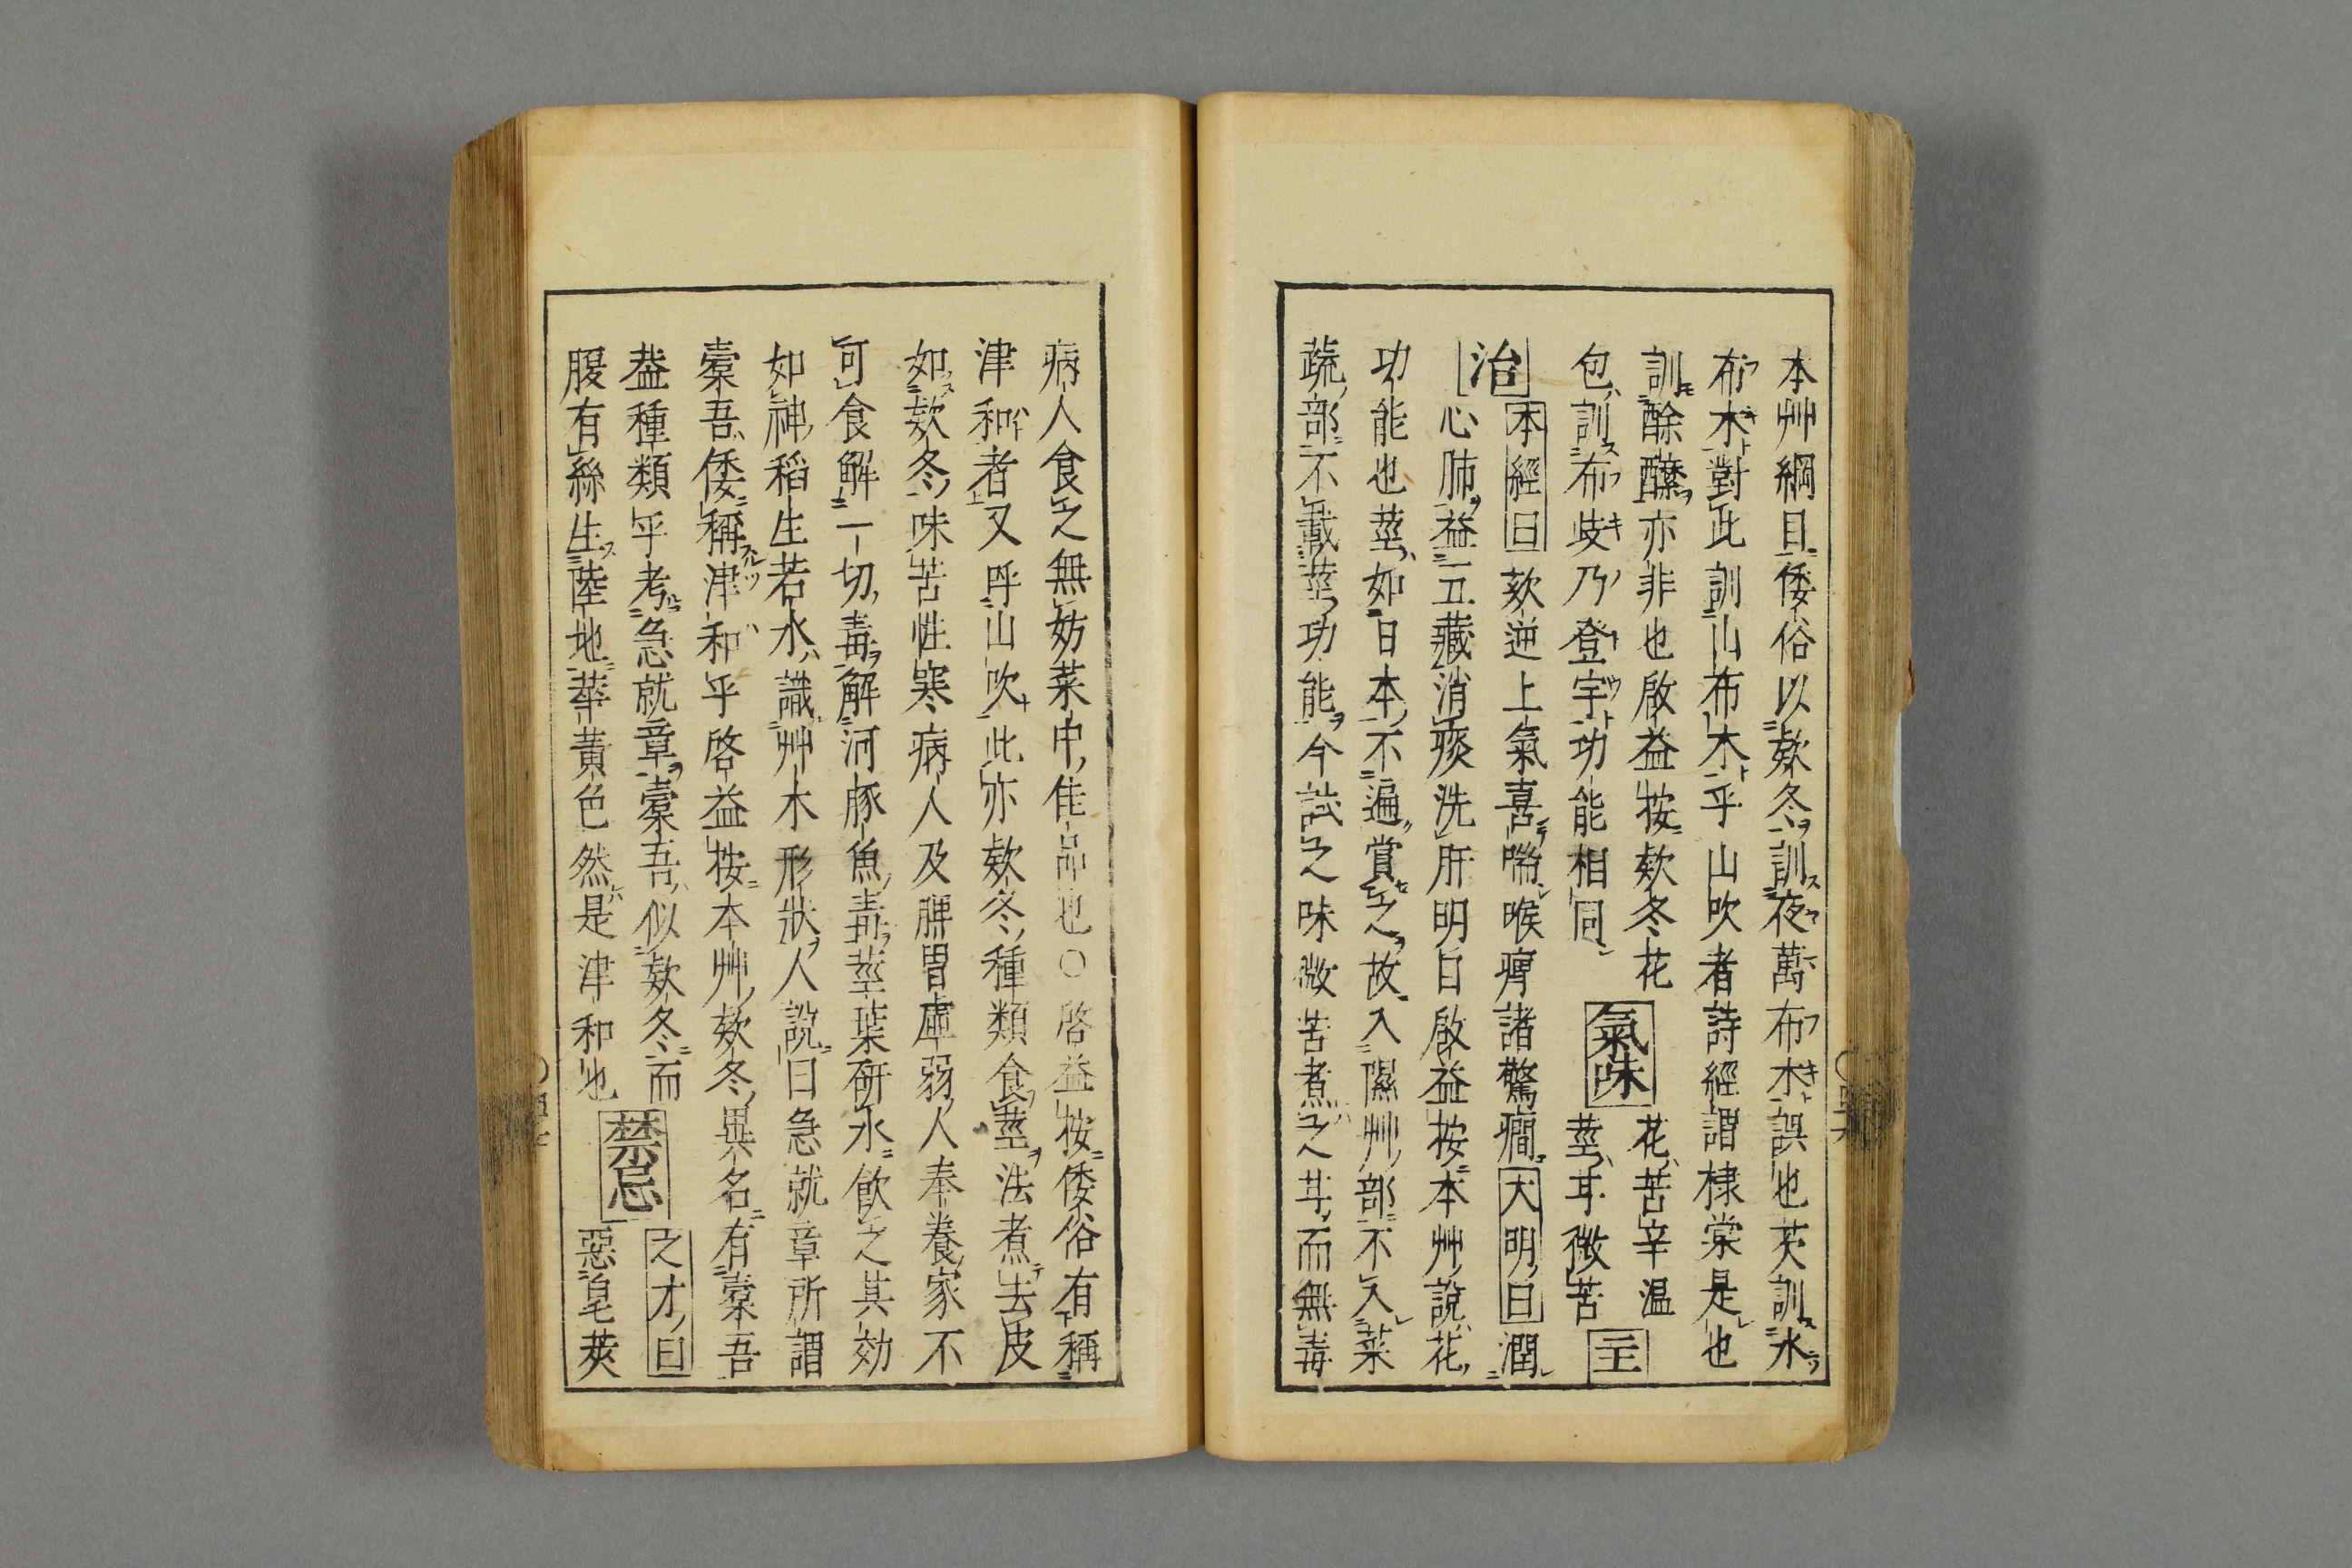 本艸綱目倭俗以欵冬訓夜萬布木誤也苂訓水
布木對此訓山布木乎山吹者詩經謂棣棠是也
訓酴醿亦非也啟益按欵冬花
包訓布歧乃登宇功能相同
氣味
花苦辛温
莖耳微苦
主
治
本經曰欬逆上氣喜喘喉痹諸驚癇大明曰潤
心肺益五藏消痰洗肝明目啟益按本艸說花
功能也莖如日本不遍賞之故入隰艸部不入菜
蔬部不載莖功能今試之味微苦煮之甘而無毒
病人食之無妨菜中佳品也○啓益按倭俗有稱
津和者又呼山吹此亦欵冬種類食莖法煮去皮
如欵冬味苦性寒病人及脾胃虛弱人奉養家不
可食解一切毒解河豚魚毒莖葉研水飮之其効
如神稻生若水識艸木形狀人說曰急就章所謂
槖吾倭稱津和乎啓益按本艸欵冬異名有槖吾
葢種類乎考急就章槖吾似欵冬而
腹有絲生陸地華黃色然是津和也
禁忌
之才曰
惡皂莢